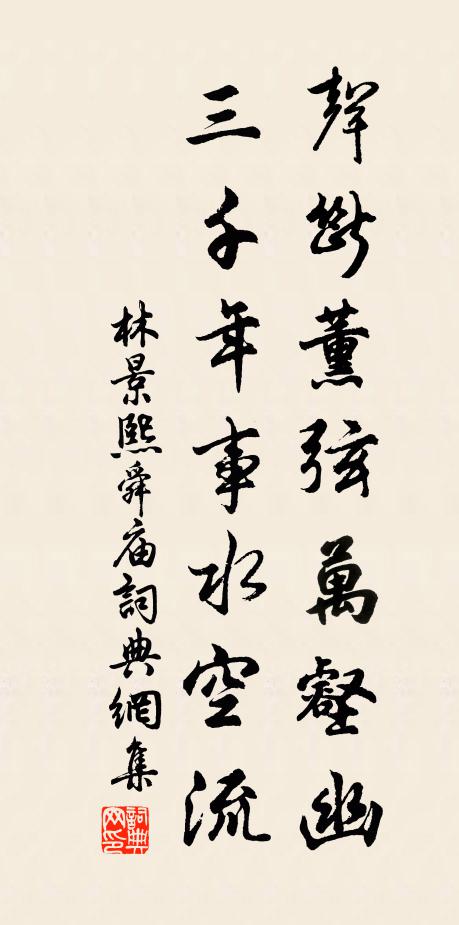 聲斷薰弦萬壑幽
三千年事水空流
林景熙舜庙詞典網集
詞典网印